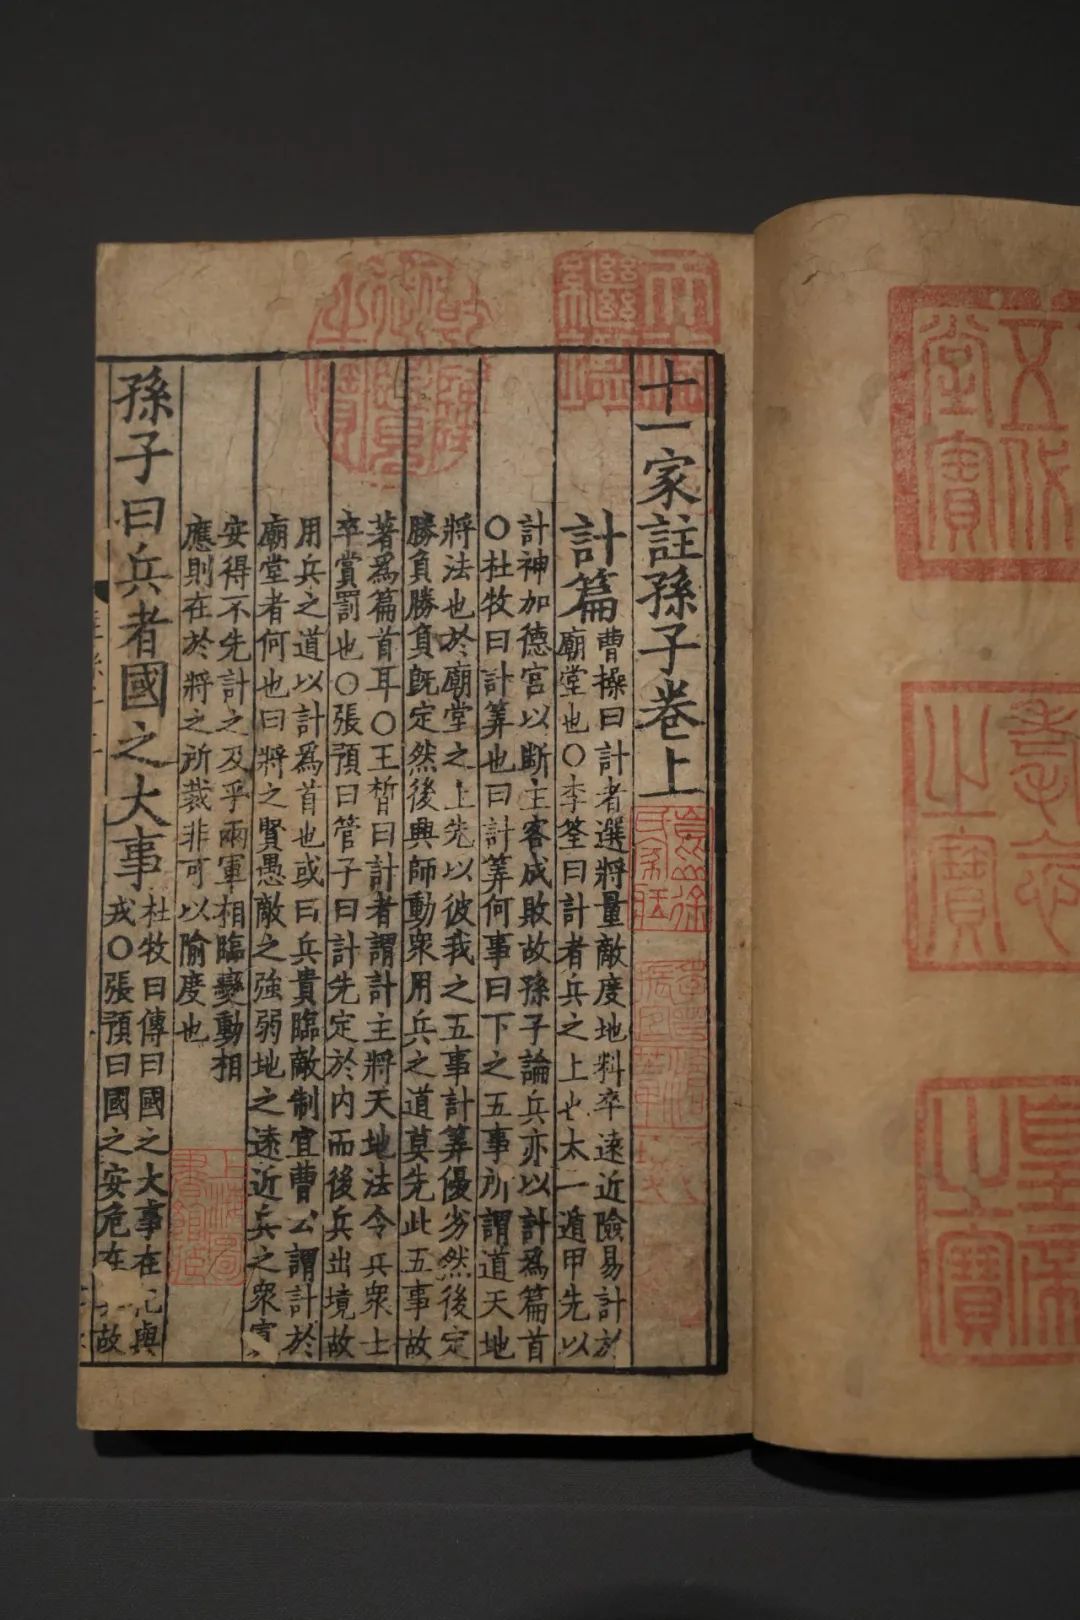 十一家註孫子卷上
計篇
曹操曰計者選將量敵度地料卒遠近險易計於
廟堂也○李筌曰計者兵之上也太一遁甲先以
計神加德宮以斷主客成敗故孫子論兵亦以計爲篇首
○杜牧曰計筭也曰計筭何事曰下之五事所謂道天地
將法也於廟堂之上先以彼我之五事計筭優劣然後定
勝負勝負旣定然後興師動衆用兵之道莫先此五事故
著爲篇首耳○王晳曰計者謂計主將天地法令兵衆士
卒賞罰也○張預曰管子曰計先定於內而後兵出境故
用兵之道以計爲首也或曰兵貴臨敵制宜曹公謂計於
廟堂者何也曰將之賢愚敵之強弱地之遠近兵之衆
安得不先計之及乎兩軍相臨變動相
應則在於將之所裁非可以隃度也
孫子曰兵者國之大事
杜牧曰傳曰國之大事在與
戎○張預曰國之安危在故
上海圖
書館藏
五代
堂寶
之寶
皇帝
之寶